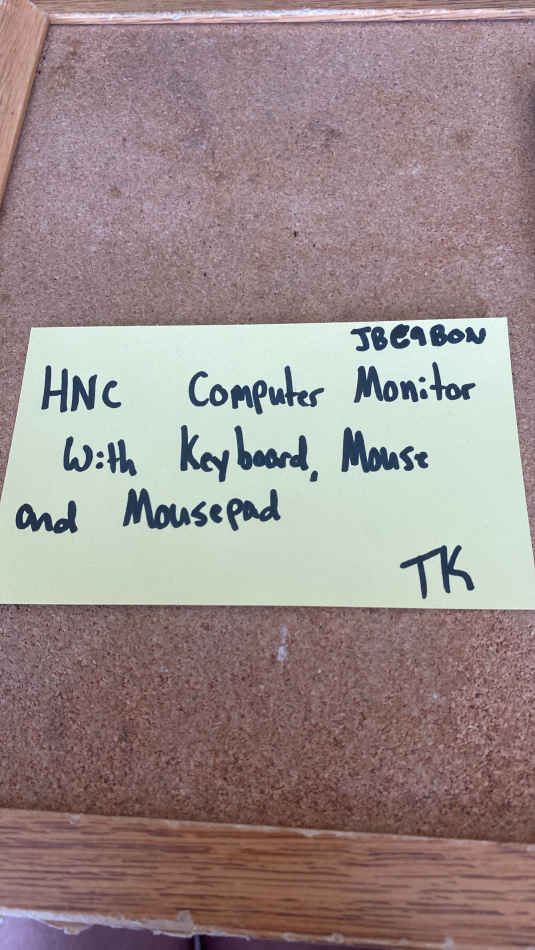 JBC9BON
HNC Computer Monitor
With Keyboard, Mouse
and Mousepad
TK